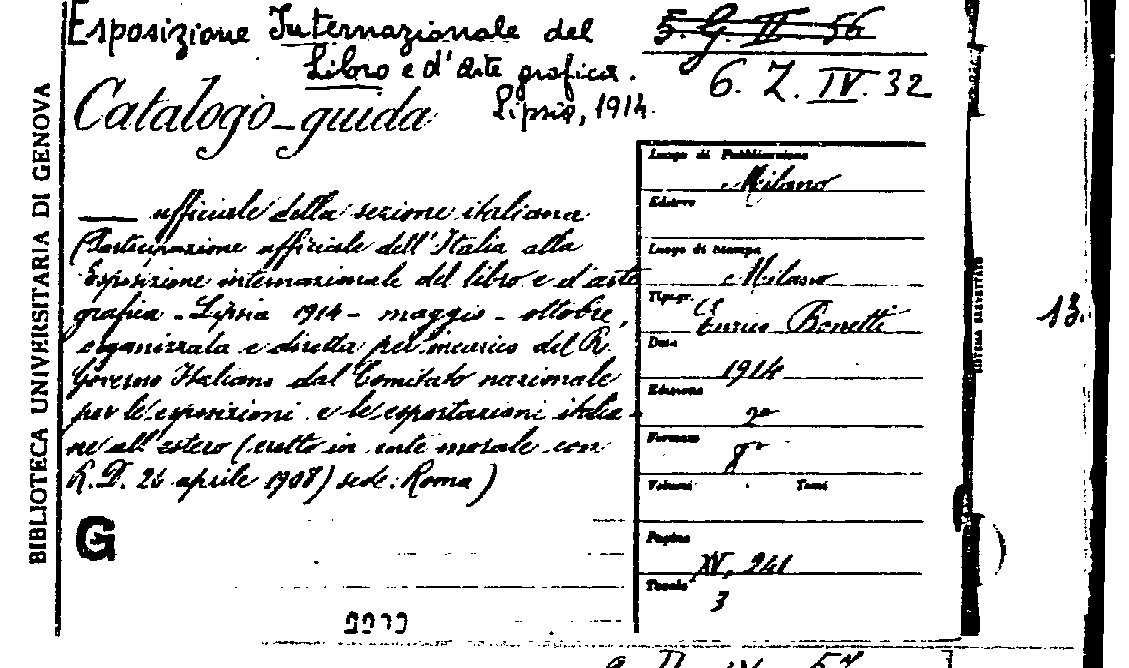 Esposizione Internazionale del
Libro e d'arte grafica.
Lipsia, 1914.
5. G. II. 56
6. Z. IV. 32
Catalogo-guida
— ufficiale della sezione italiana
(Partecipazione ufficiale dell'Italia alla
Esposizione internazionale del libro e d'arte
grafica - Lipsia 1914 - maggio - ottobre,
organizzata e diretta per incarico del R.
Governo Italiano dal Comitato nazionale
per le esposizioni e le esportazioni italia-
ne all'estero (eretto in ente morale con
R. D. 26 aprile 1908) sede: Roma)
G
BIBLIOTECA UNIVERSITARIA DI GENOVA
Luogo di Pubblicazione
Milano
Editore
Luogo di stampa
Milano
Tipogr.
Enrico Bonetti
Data
1914
Edizione
2ª
Formato
8°
Volumi Tomi
Pagine
XV, 241
Tavole
3
13.